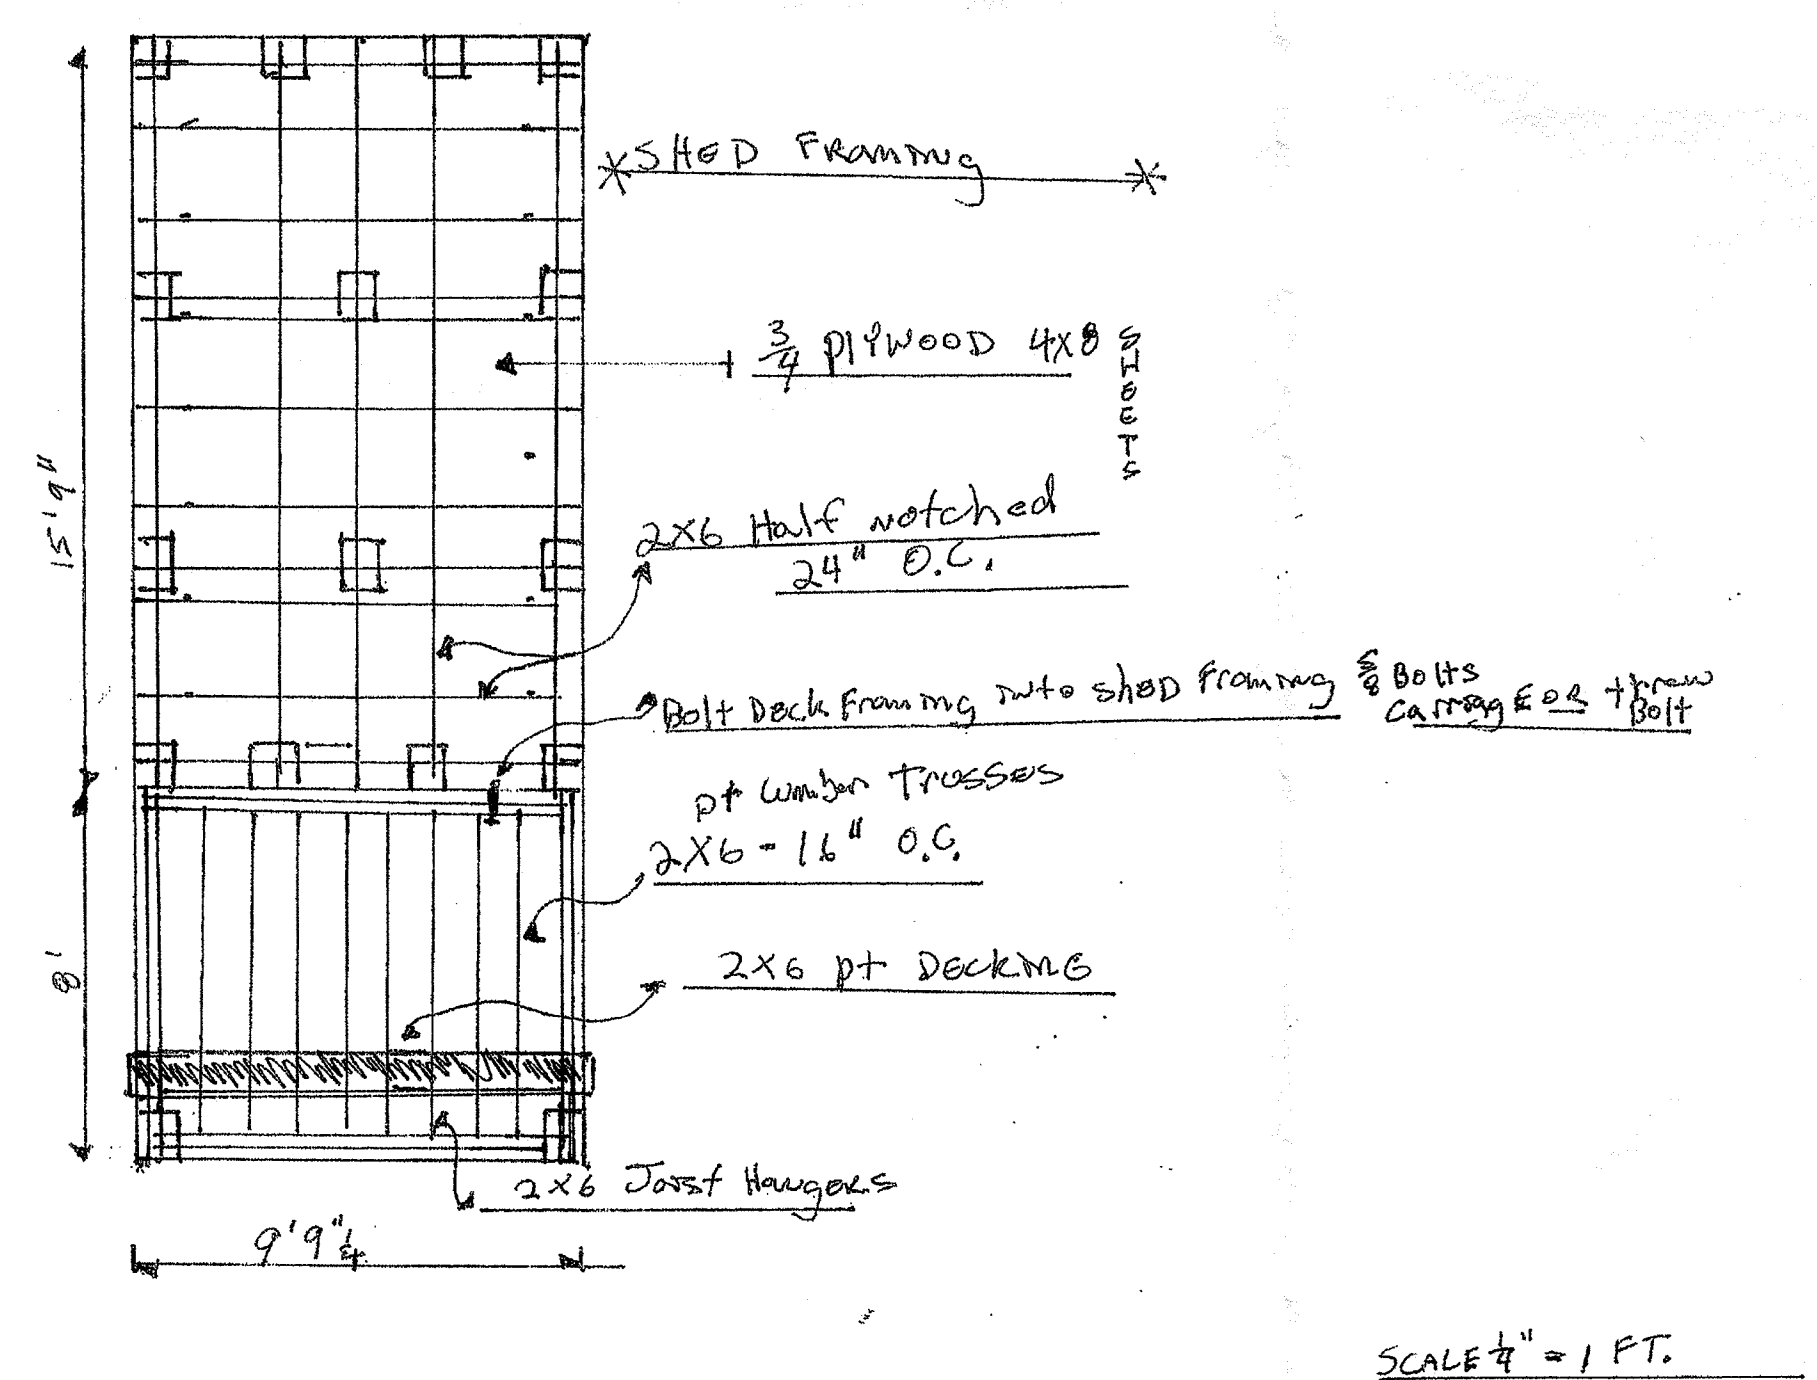 SHED FRAMING
3/4 PLYWOOD 4X8 SHEETS
2X6 Half notched
24" O.C.
Bolt Deck Framing into shED Framing 5/8 Bolts
CarriagE OR threw Bolt
pt Lumber Trusses
2X6 - 16" O.C.
2X6 pt DECKING
2X6 Joist HangeRs
15'9"
8'
9'9"1/4
SCALE 1/4" = 1 FT.